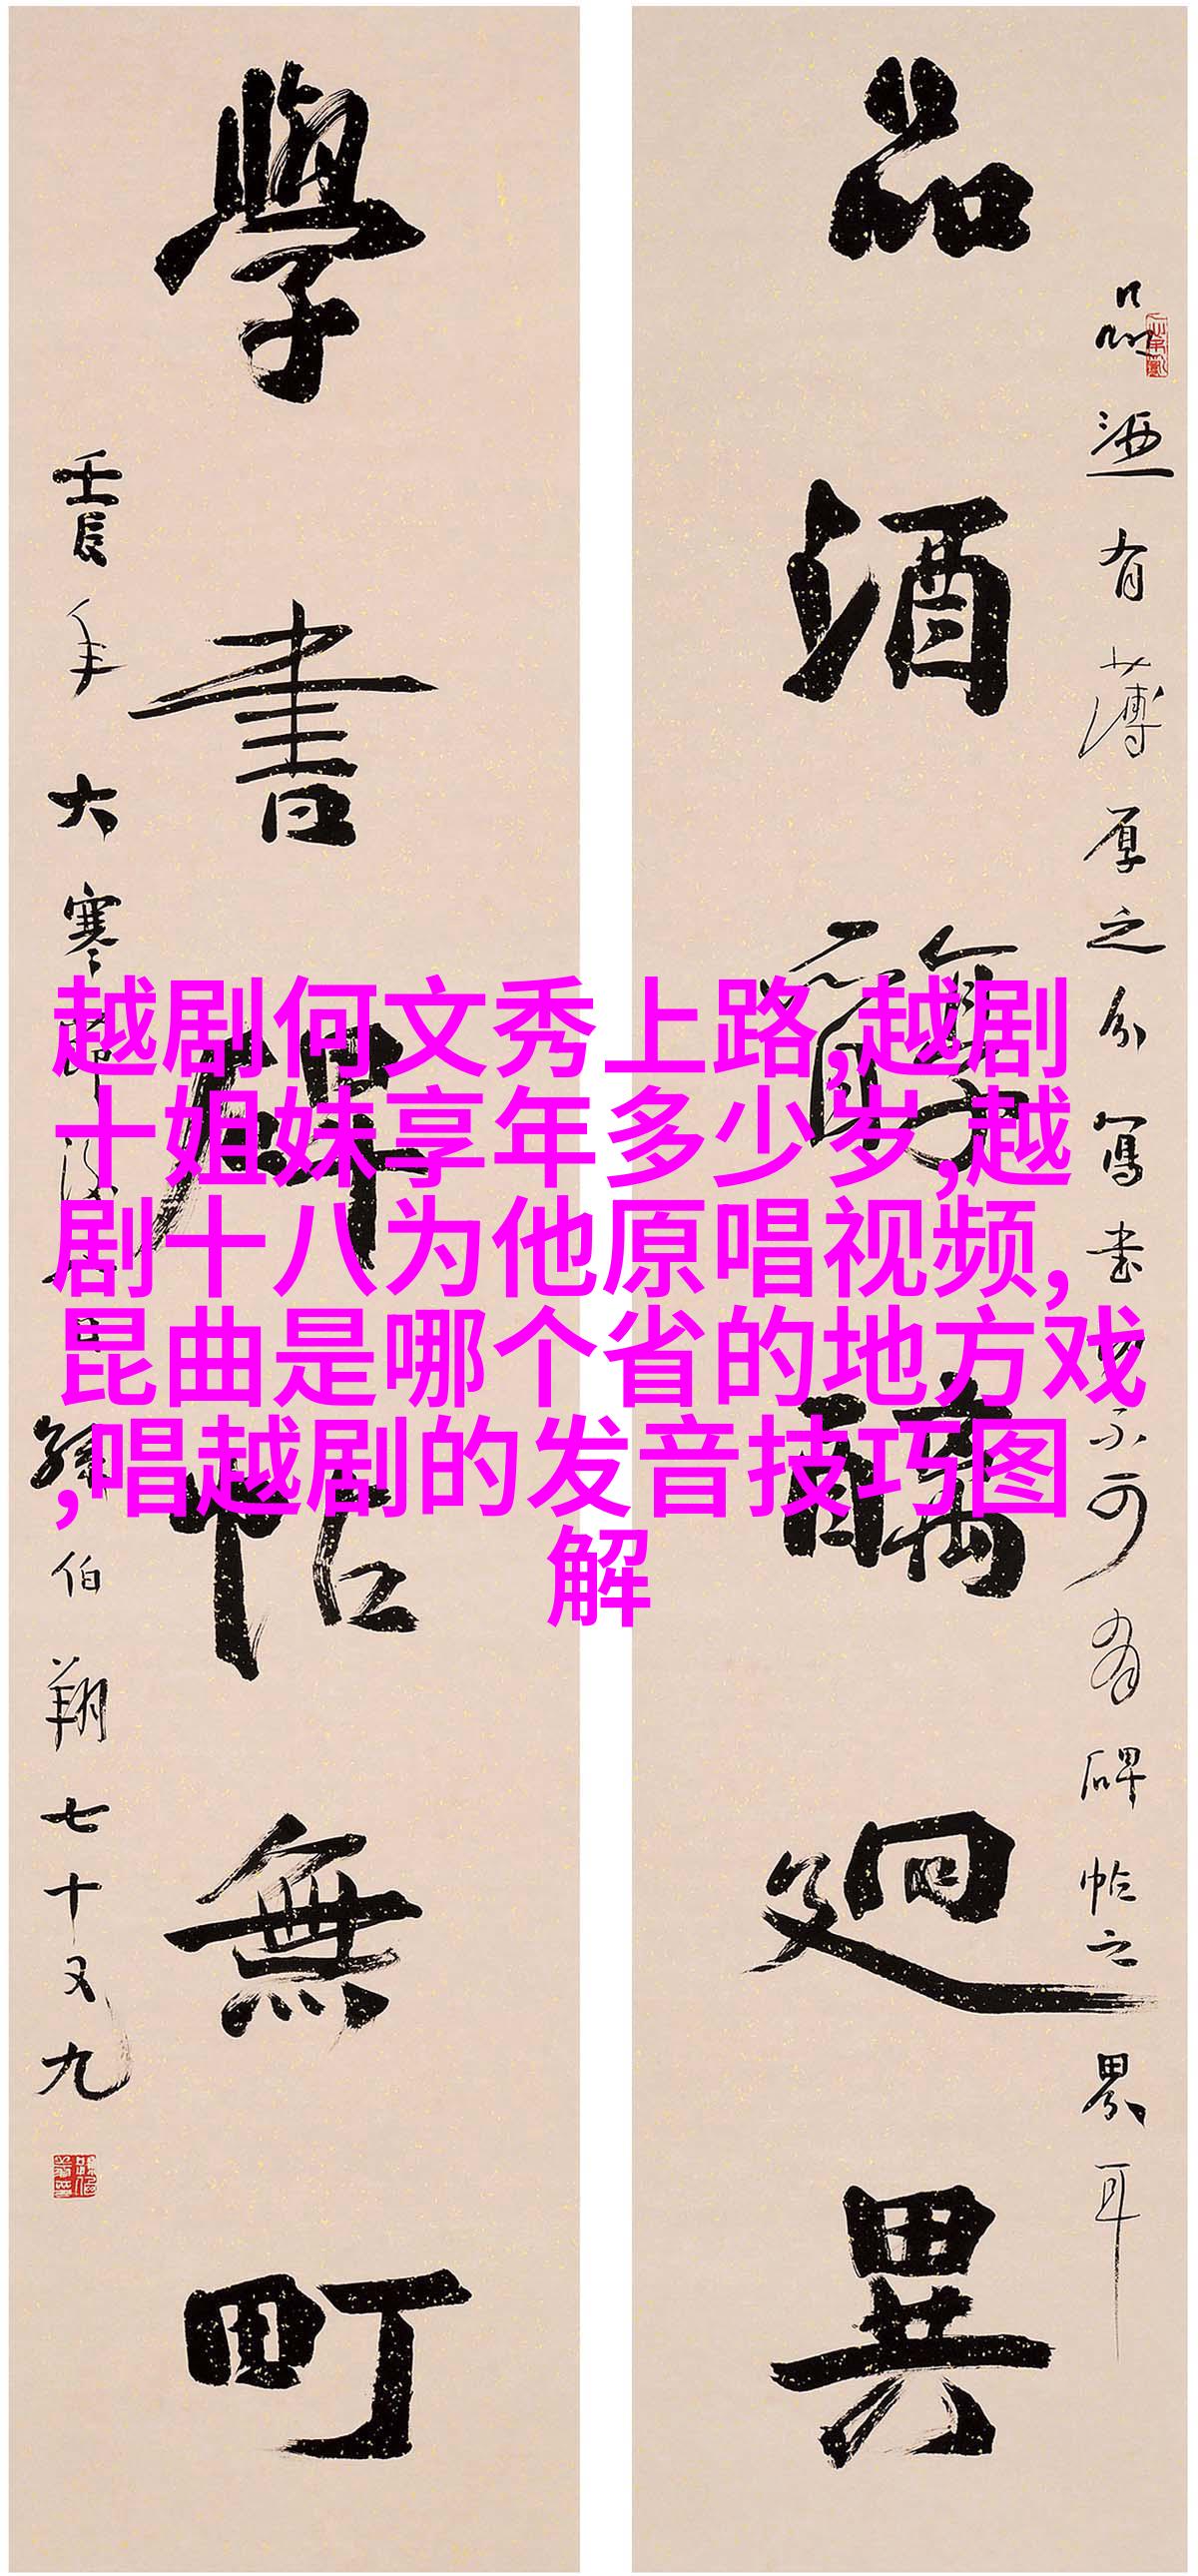 品酒醇醨迥異
品酒有薄厚之分寫書
不可有碑帖之界耳
學書碑帖無町
壬辰年大寒
孫伯翔七十又九
越剧何文秀上路,越剧
十姐妹享年多少岁,越
剧十八为他原唱视频,
昆曲是哪个省的地方戏
,唱越剧的发音技巧图
解